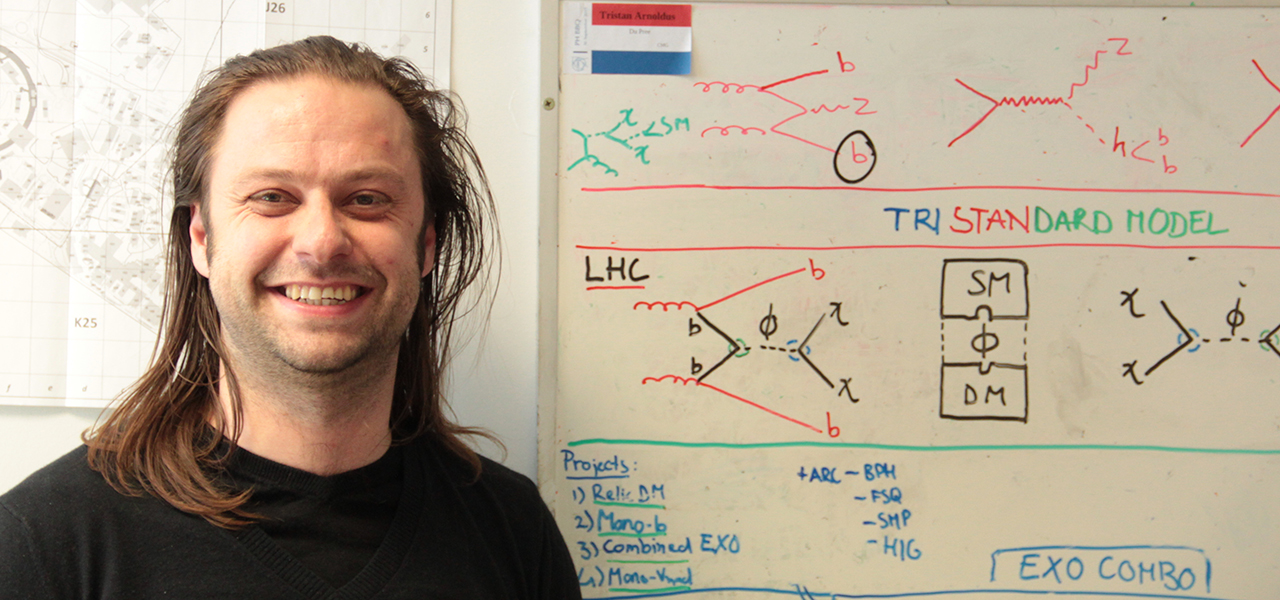 J26
6
5
K25
f
e
d
c
b
a
Tristan Arnoldus
Du Pree
CMS
PH BBQ
b
Z
b
x
SM
x
Z
h
b
b
TRISTANDARD MODEL
LHC
b
b
ϕ
χ
b
χ
b
SM
ϕ
DM
χ
ϕ
χ
Projects:
1) Relic DM
2) Mono-b
3) Combined EXO
4) Mono-
+ARC - BPH
- FSQ
- SMP
- HIG
EXO COMBO